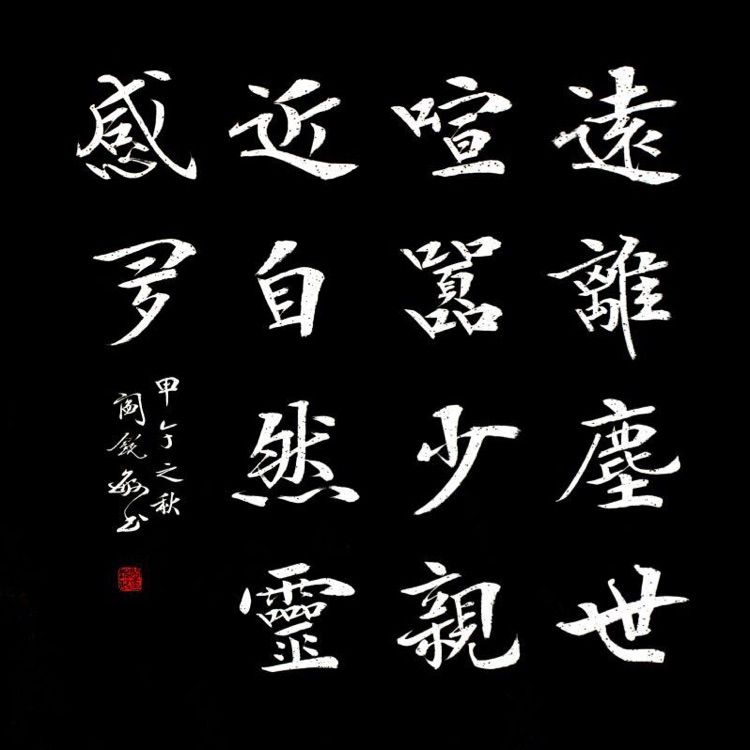 遠離塵世
喧囂少親
近自然靈
感多
甲午之秋
閻銳敏书